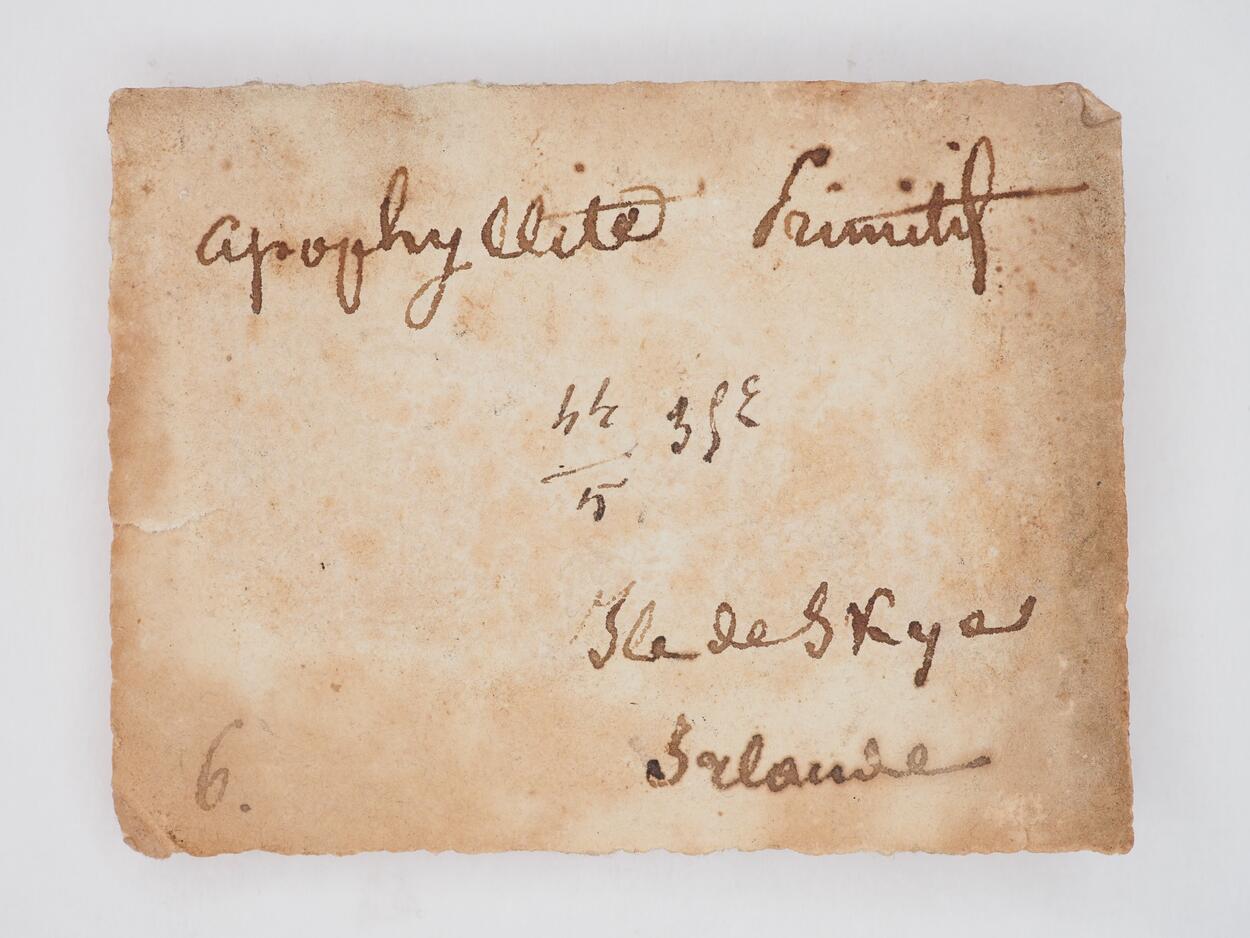 apophyllite Primitif
44
5
Ile de Skye
Irlande
6.